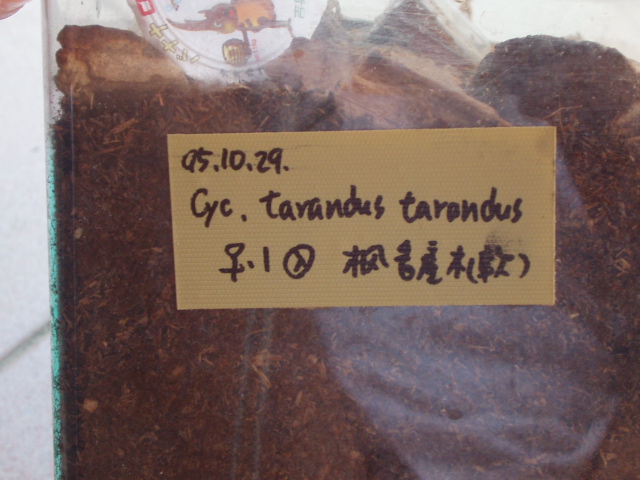 95.10.29.
Cyc. tarandus tarandus
♀.1 入 楓產木(軟)